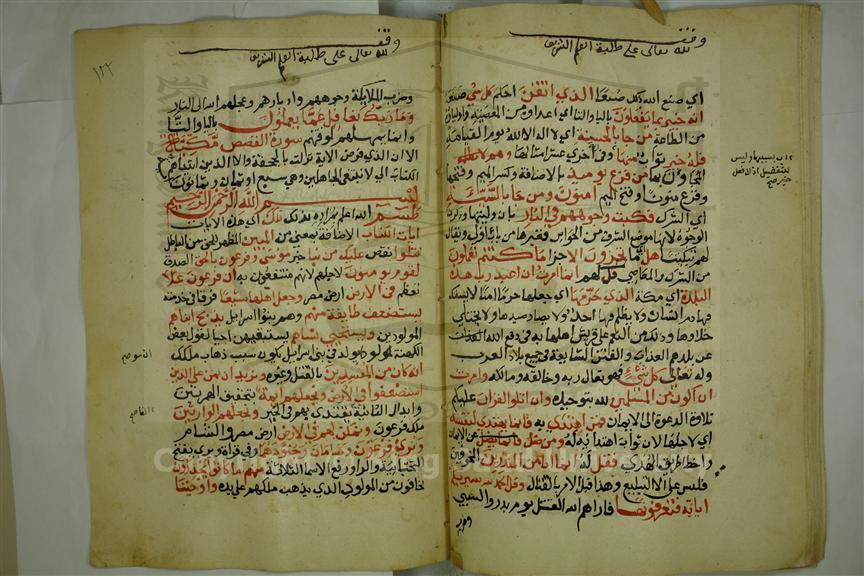 وقف
لله تعالى على طلبة العلم الشريف
اي صنع الله ذلك صنعا الذي اتقن احكم كل شي صنعه
انه خبير بما يفعلون بالياء والتاء اي اعداؤه من المعصية واولياؤه
من الطاعة من جا بالحسنة اي لا اله الا الله يوم القيامة
فله خير ثواب منها وفي اخرى عشر امثالها وهم
من فزع يوميذ بالاضافة وكسر الميم وفتحها
وفزع منونا وفتح الميم امنون ومن جا بالسيئة
اي الشرك فكبت وجوههم في النار بان وليتها وذكرت
الوجوه لانها موضع الشرف من الحواس فغيرها من باب اولى ويقال
لهم تبكيتا هل ما تجزون الا جزا ما كنتم تعملون
من الشرك والمعاصي قل لهم انما امرت ان اعبد رب هذه
البلدة اي مكة الذي حرمها اي جعلها حرما امنا لا يسفك
فيها دم انسان ولا يظلم فيها احد ولا يصاد صيدها ولا يختلى
خلاؤها وذلك من النعم على قريش اهلها في دفع الله العذاب
عن بلدهم العذاب والفتن الشايعة في جميع بلاد العرب
وله تعالى كل شي فهو تعالى ربه وخالقه ومالكه وامرت
ان اكون من المسلمين لله بتوحيده وان اتلو القران عليكم
تلاوة الدعوة الى الايمان فمن اهتدى به فانما يهتدي لنفسه
اي لاجلها لان ثواب اهتدايه له ومن ضل عن الايمان
واخطا طريق الهدى فقل له انما انا من المنذرين المخوفين
فليس علي الا التبليغ وهذا قبل الامر بالقتال وقل الحمد لله سيريكم
اياته فتعرفونها فاراهم الله القتل يوم بدر والسبي
وضرب
وقف
لله تعالى على طلبة العلم الشريف
١٢٢
وضرب الملايكة وجوههم وادبارهم وعجلهم الله الى النار
وما ربك بغافل عما يعملون بالياء والتا
وانما يمهلهم لوقتهم سورة القصص مكية
الا ان الذي فرض الاية نزلت بالجحفة والا الذين اتيناهم
الكتاب الى لا نبتغي الجاهلين وهي سبع او ثمان وثمانون
بسم الله الرحمن الرحيم
طسم الله اعلم بمراده بذلك تلك اي هذه الايات
ايات الكتاب الاضافة بمعنى من المبين المظهر الحق من الباطل
نتلوا نقص عليك من نبا خبر موسى وفرعون بالحق الصدق
لقوم يومنون لاجلهم لانهم منتفعون به ان فرعون علا
تعظم في الارض ارض مصر وجعل اهلها شيعا فرقا في خدمته
يستضعف طايفة منهم وهم بنو اسرايل يذبح ابناهم
المولودين ويستحيي نساهم يستبقيهن احيا لقول بعض
الكهنة له مولود يولد في بني اسرايل يكون سبب ذهاب ملكك
انه كان من المفسدين بالقتل وغيره ونريد ان نمن على الذين
استضعفوا في الارض ونجعلهم ايمة بتحقيق الهمزتين
وابدال الثانية يقتدى بهم في الخير ونجعلهم الوارثين
ملك فرعون ونمكن لهم في الارض ارض مصر والشام
ونري فرعون وهامان وجنودهما وفي قراة ويرى بفتح
التحتانية والراء ورفع الاسما الثلاثة منهم ما كانوا يحذرون
خافون من المولود الذي يذهب ملكهم على يده واوحينا